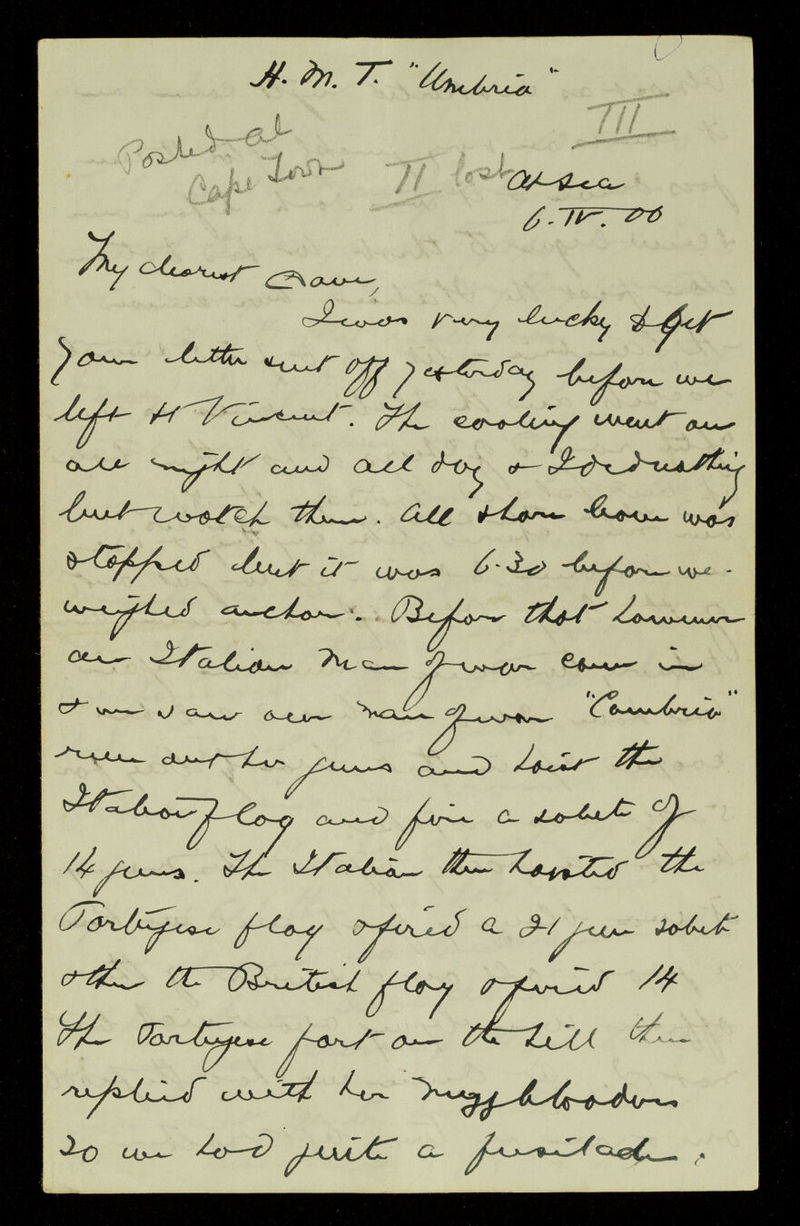 H. M. T. "Umbria"
III
Posted at
Cape Town
II lost
At Sea
6. IV. 00
My dearest
I was very lucky to get
your letter sent off yesterday before we
left St Vincent. The coaling went on
all night and all day & I did nothing
but watch them. All shore leave was
stopped but it was 6.30 before we
weighed anchor. Before that however
an Italian Man of war came in
& we saw our man of war "Cambria"
run out her guns and hoist the
Italian flag and fire a salute of
14 guns. The Italian then hoisted the
Portugese flag & fired a 21 gun salute
& then the British flag & fired 14
The Portugese fort on the hill then
replied with her muzzleloaders
so we had quite a fusilade.